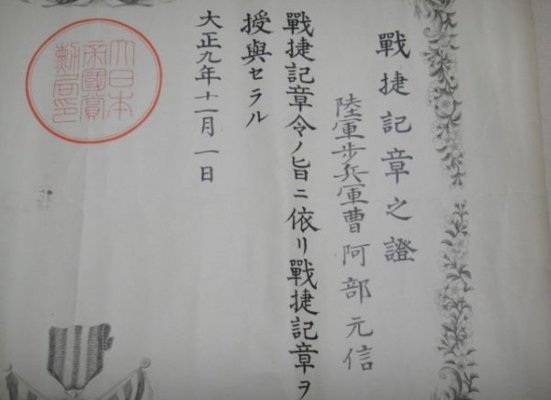 戰捷記章之證
陸軍步兵軍曹 阿部元信
戰捷記章令ノ旨ニ依リ戰捷記章ヲ
授與セラル
大正九年十一月一日
大日本
帝國賞
勳局印